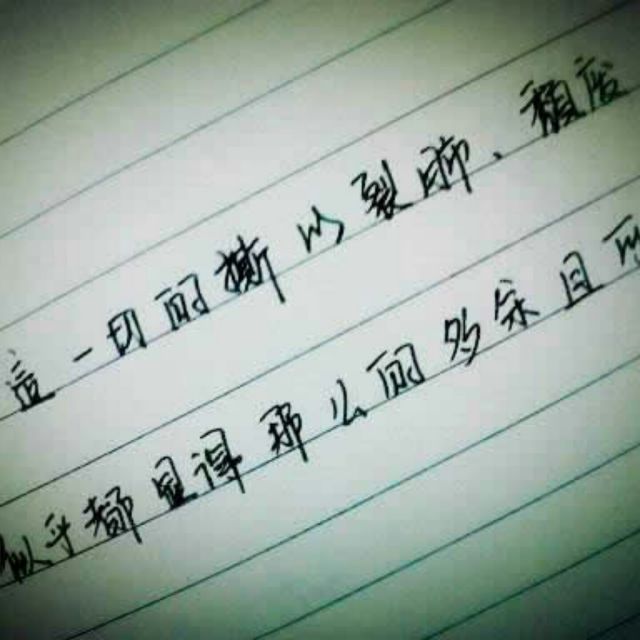 这一切的撕心裂肺、颓废
似乎都显得那么的多余且